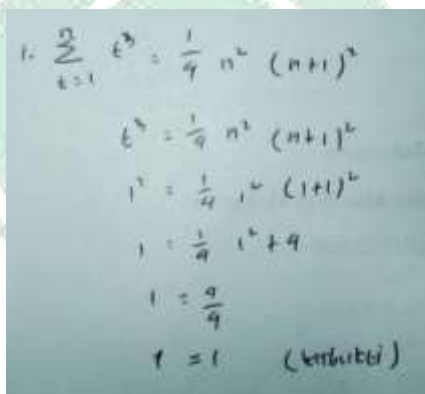 1. n Σ t=1 t³ = 1/4 n² (n+1)²
t³ = 1/4 n² (n+1)²
1³ = 1/4 1² (1+1)²
1 = 1/4 1² + 4
1 = 4/4
1 = 1 (terbukti)